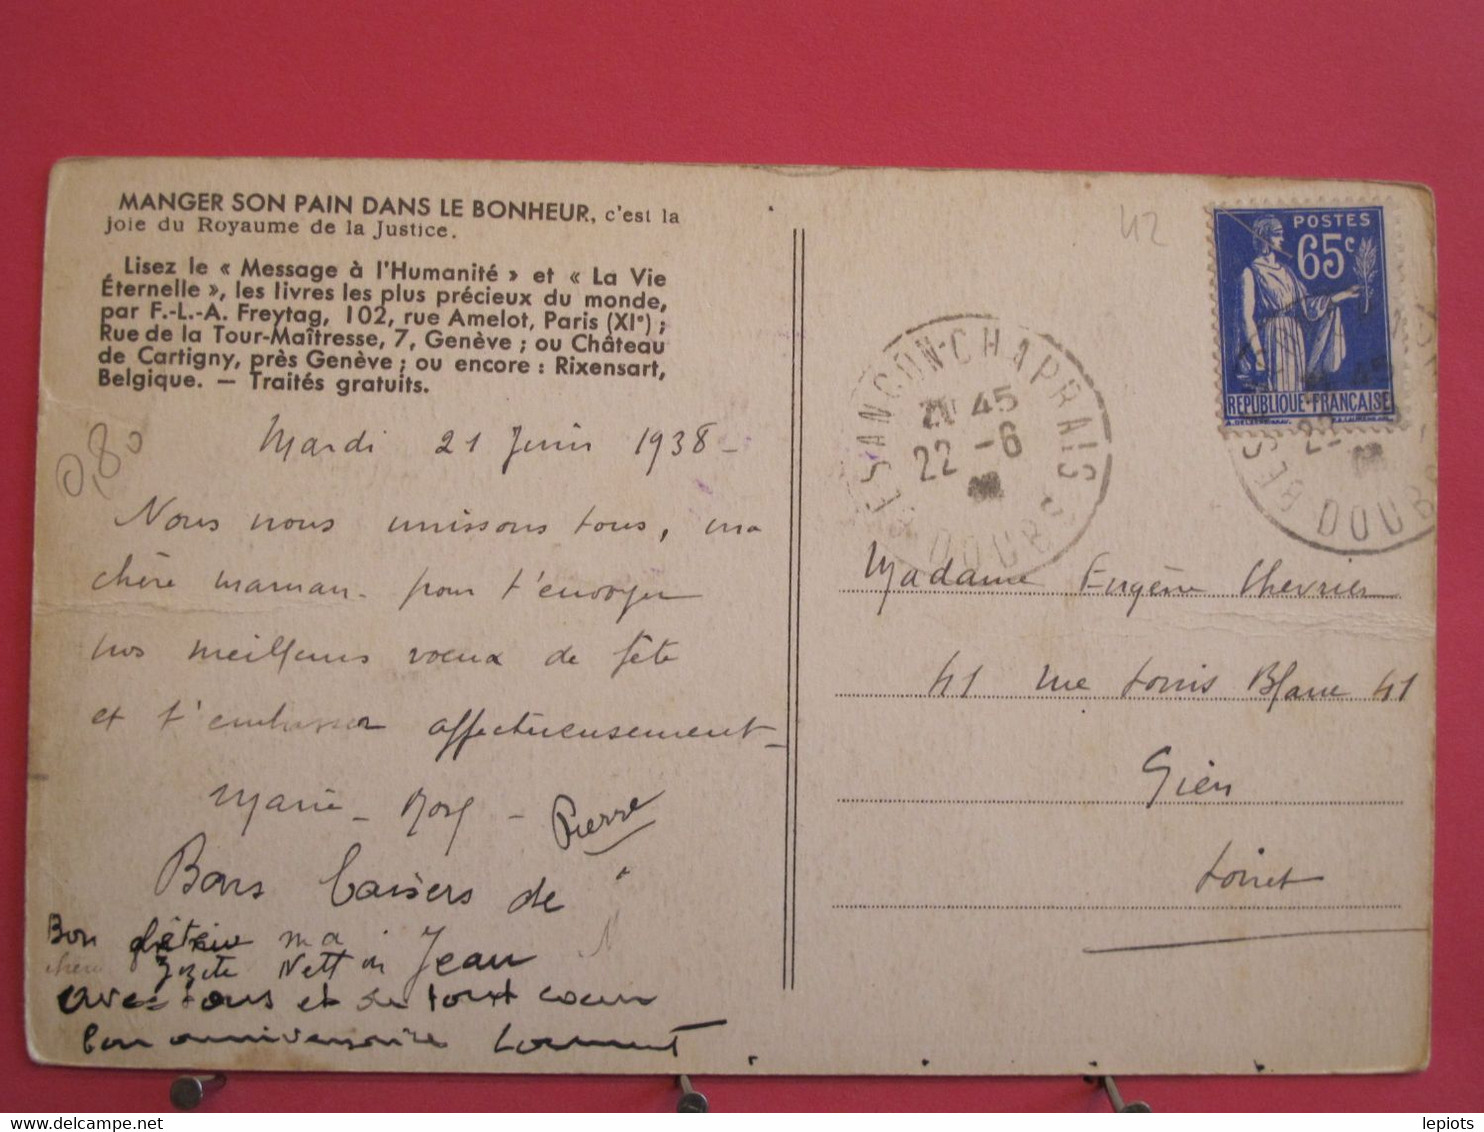 MANGER SON PAIN DANS LE BONHEUR, c'est la
joie du Royaume de la Justice.
Lisez le « Message à l'Humanité » et « La Vie
Éternelle », les livres les plus précieux du monde,
par F.-L.-A. Freytag, 102, rue Amelot, Paris (XIe) ;
Rue de la Tour-Maîtresse, 7, Genève ; ou Château
de Cartigny, près Genève ; ou encore : Rixensart,
Belgique. — Traités gratuits.
0,80
Mardi 21 Juin 1938 -
Nous nous unissons tous, ma
chère maman - pour t'envoyer
nos meilleurs vœux de fête
et t'embrasser affectueusement -
Marie - Rose - Pierre
Bons baisers de
Bon ma
Jean
avec tous et de tout coeur
bon anniversaire Laurent
42
POSTES
65c
REPUBLIQUE-FRANÇAISE
BESANCON-CHAPRAIS
45
22 -6
DOUBS
BES
22-
DOUBS
Madame Eugène Chevrier
41 rue Louis Blanc 41
Gien
Loiret
lepiots